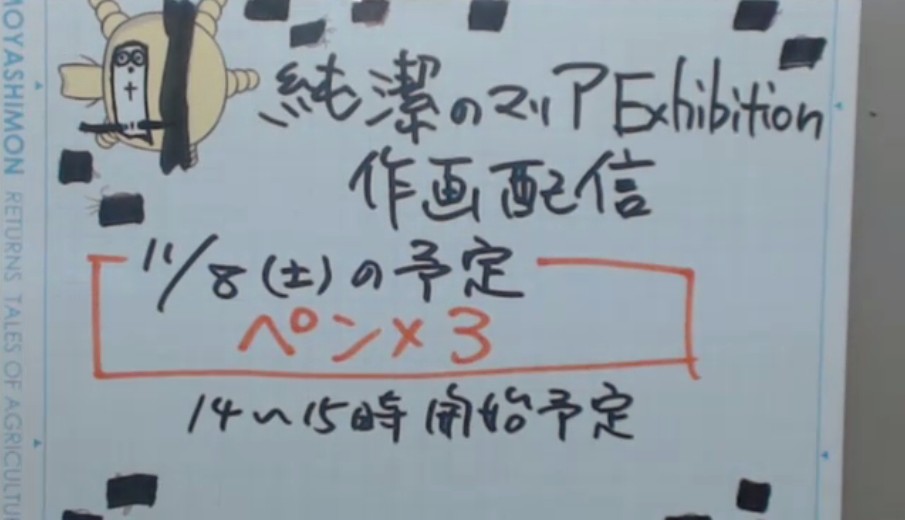 MOYASHIMON RETURNS TALES OF AGRICULTU
純潔のマリア Exhibition
作画配信
11/8(土)の予定
ペン×3
14〜15時開始予定